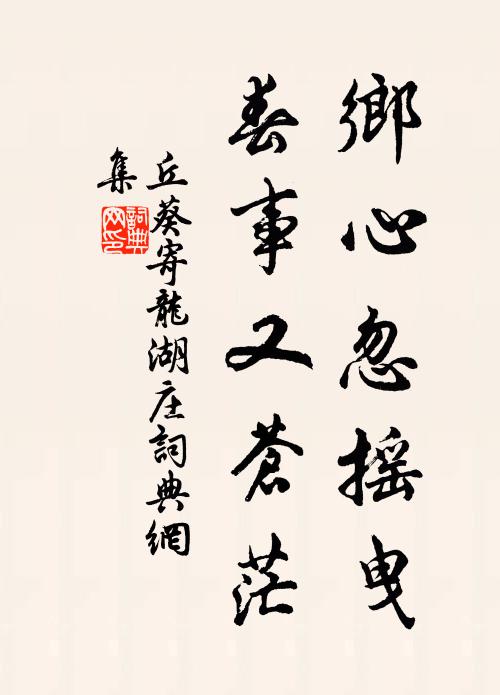 鄉心忽摇曳
春事又蒼茫
丘葵寄龍湖庄詞典網
集
詞典
网印